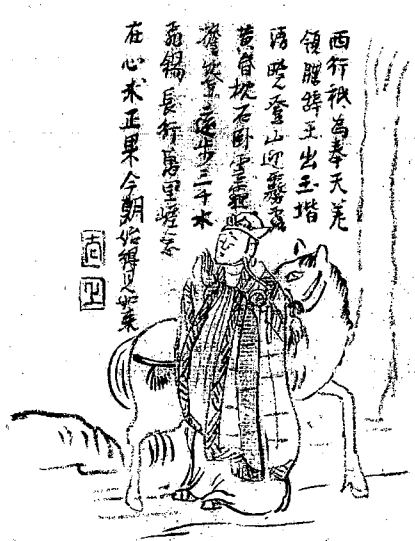 西行祇為奉天差
領牒辭王出玉堦
清曉登山迎霧露
黃昏枕石臥雲霾
步三千水
飛錫長行萬里崖念
在心求正果今朝始得見如來